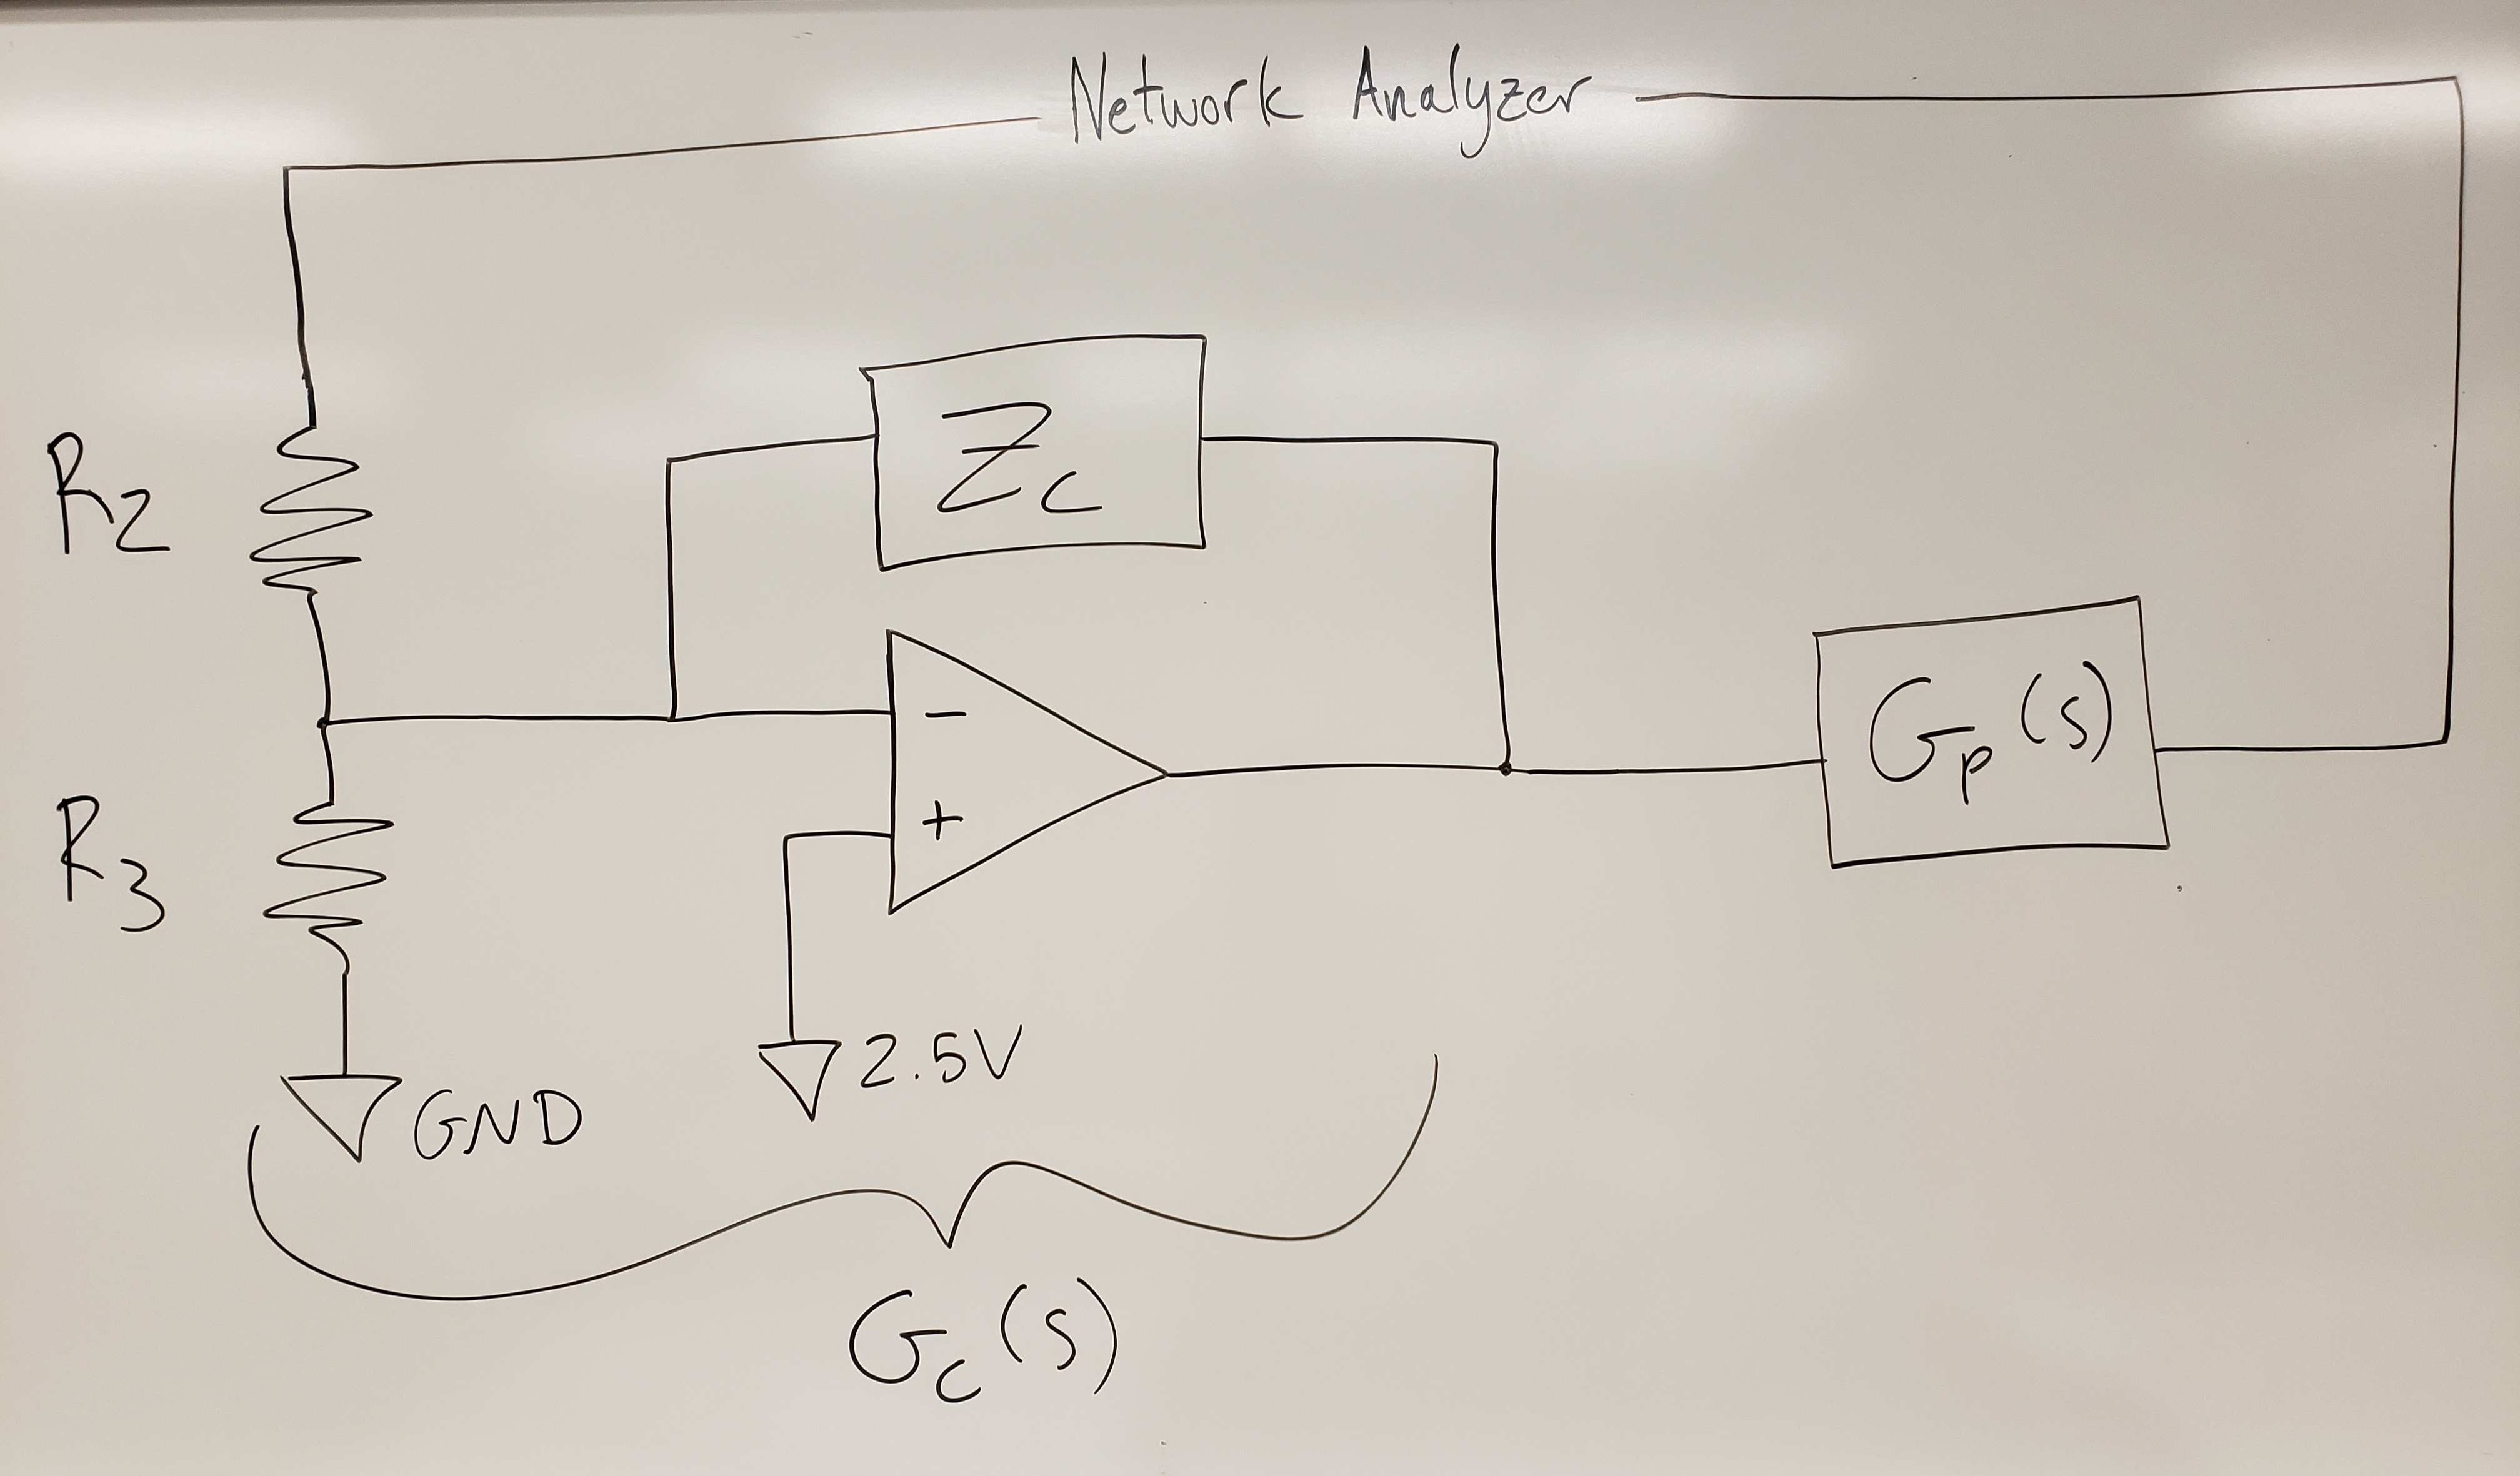 Network Analyzer
R2
Zc
Gp(s)
-
+
R3
2.5V
GND
Gc(s)